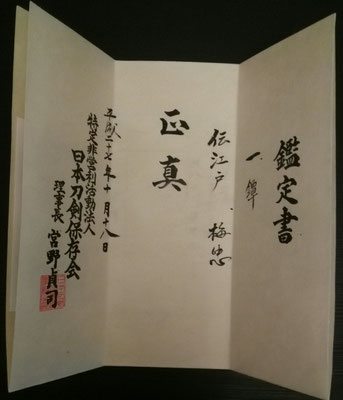 鑑定書
一、鐔
伝江戸 梅忠
正真
平成二十七年十月十八日
特定非営利活動法人
日本刀剣保存会
理事長 宮野貞司